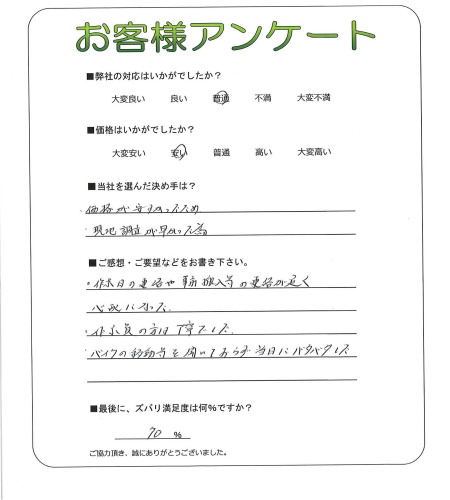 お客様アンケート
■弊社の対応はいかがでしたか？
大変良い 良い 普通 不満 大変不満
■価格はいかがでしたか？
大変安い 安い 普通 高い 大変高い
■当社を選んだ決め手は？
・価格が安すかったため
・現地調査が早かった為
■ご感想・ご要望などをお書き下さい。
・作業日の連絡や事前搬入等の連絡が遅く
心配になった.
・作業員の方は丁寧でした.
・バイクの移動等を聞いておらず当日にバタバタした
■最後に、ズバリ満足度は何%ですか？
70 %
ご協力頂き、誠にありがとうございました。